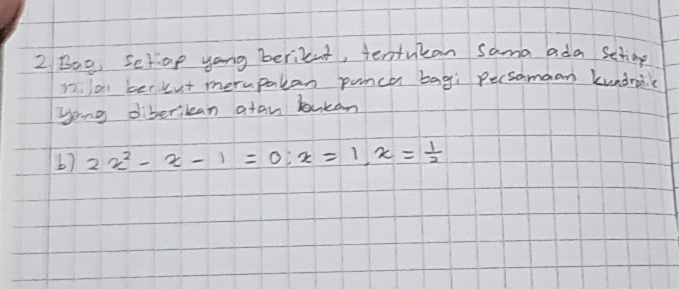 2. Bagi setiap yang berikut, tentukan sama ada setiap
nilai berikut merupakan punca bagi persamaan kundratik
yang diberikan atau bukan
b) 2x² - x - 1 = 0; x = 1, x = 1/2